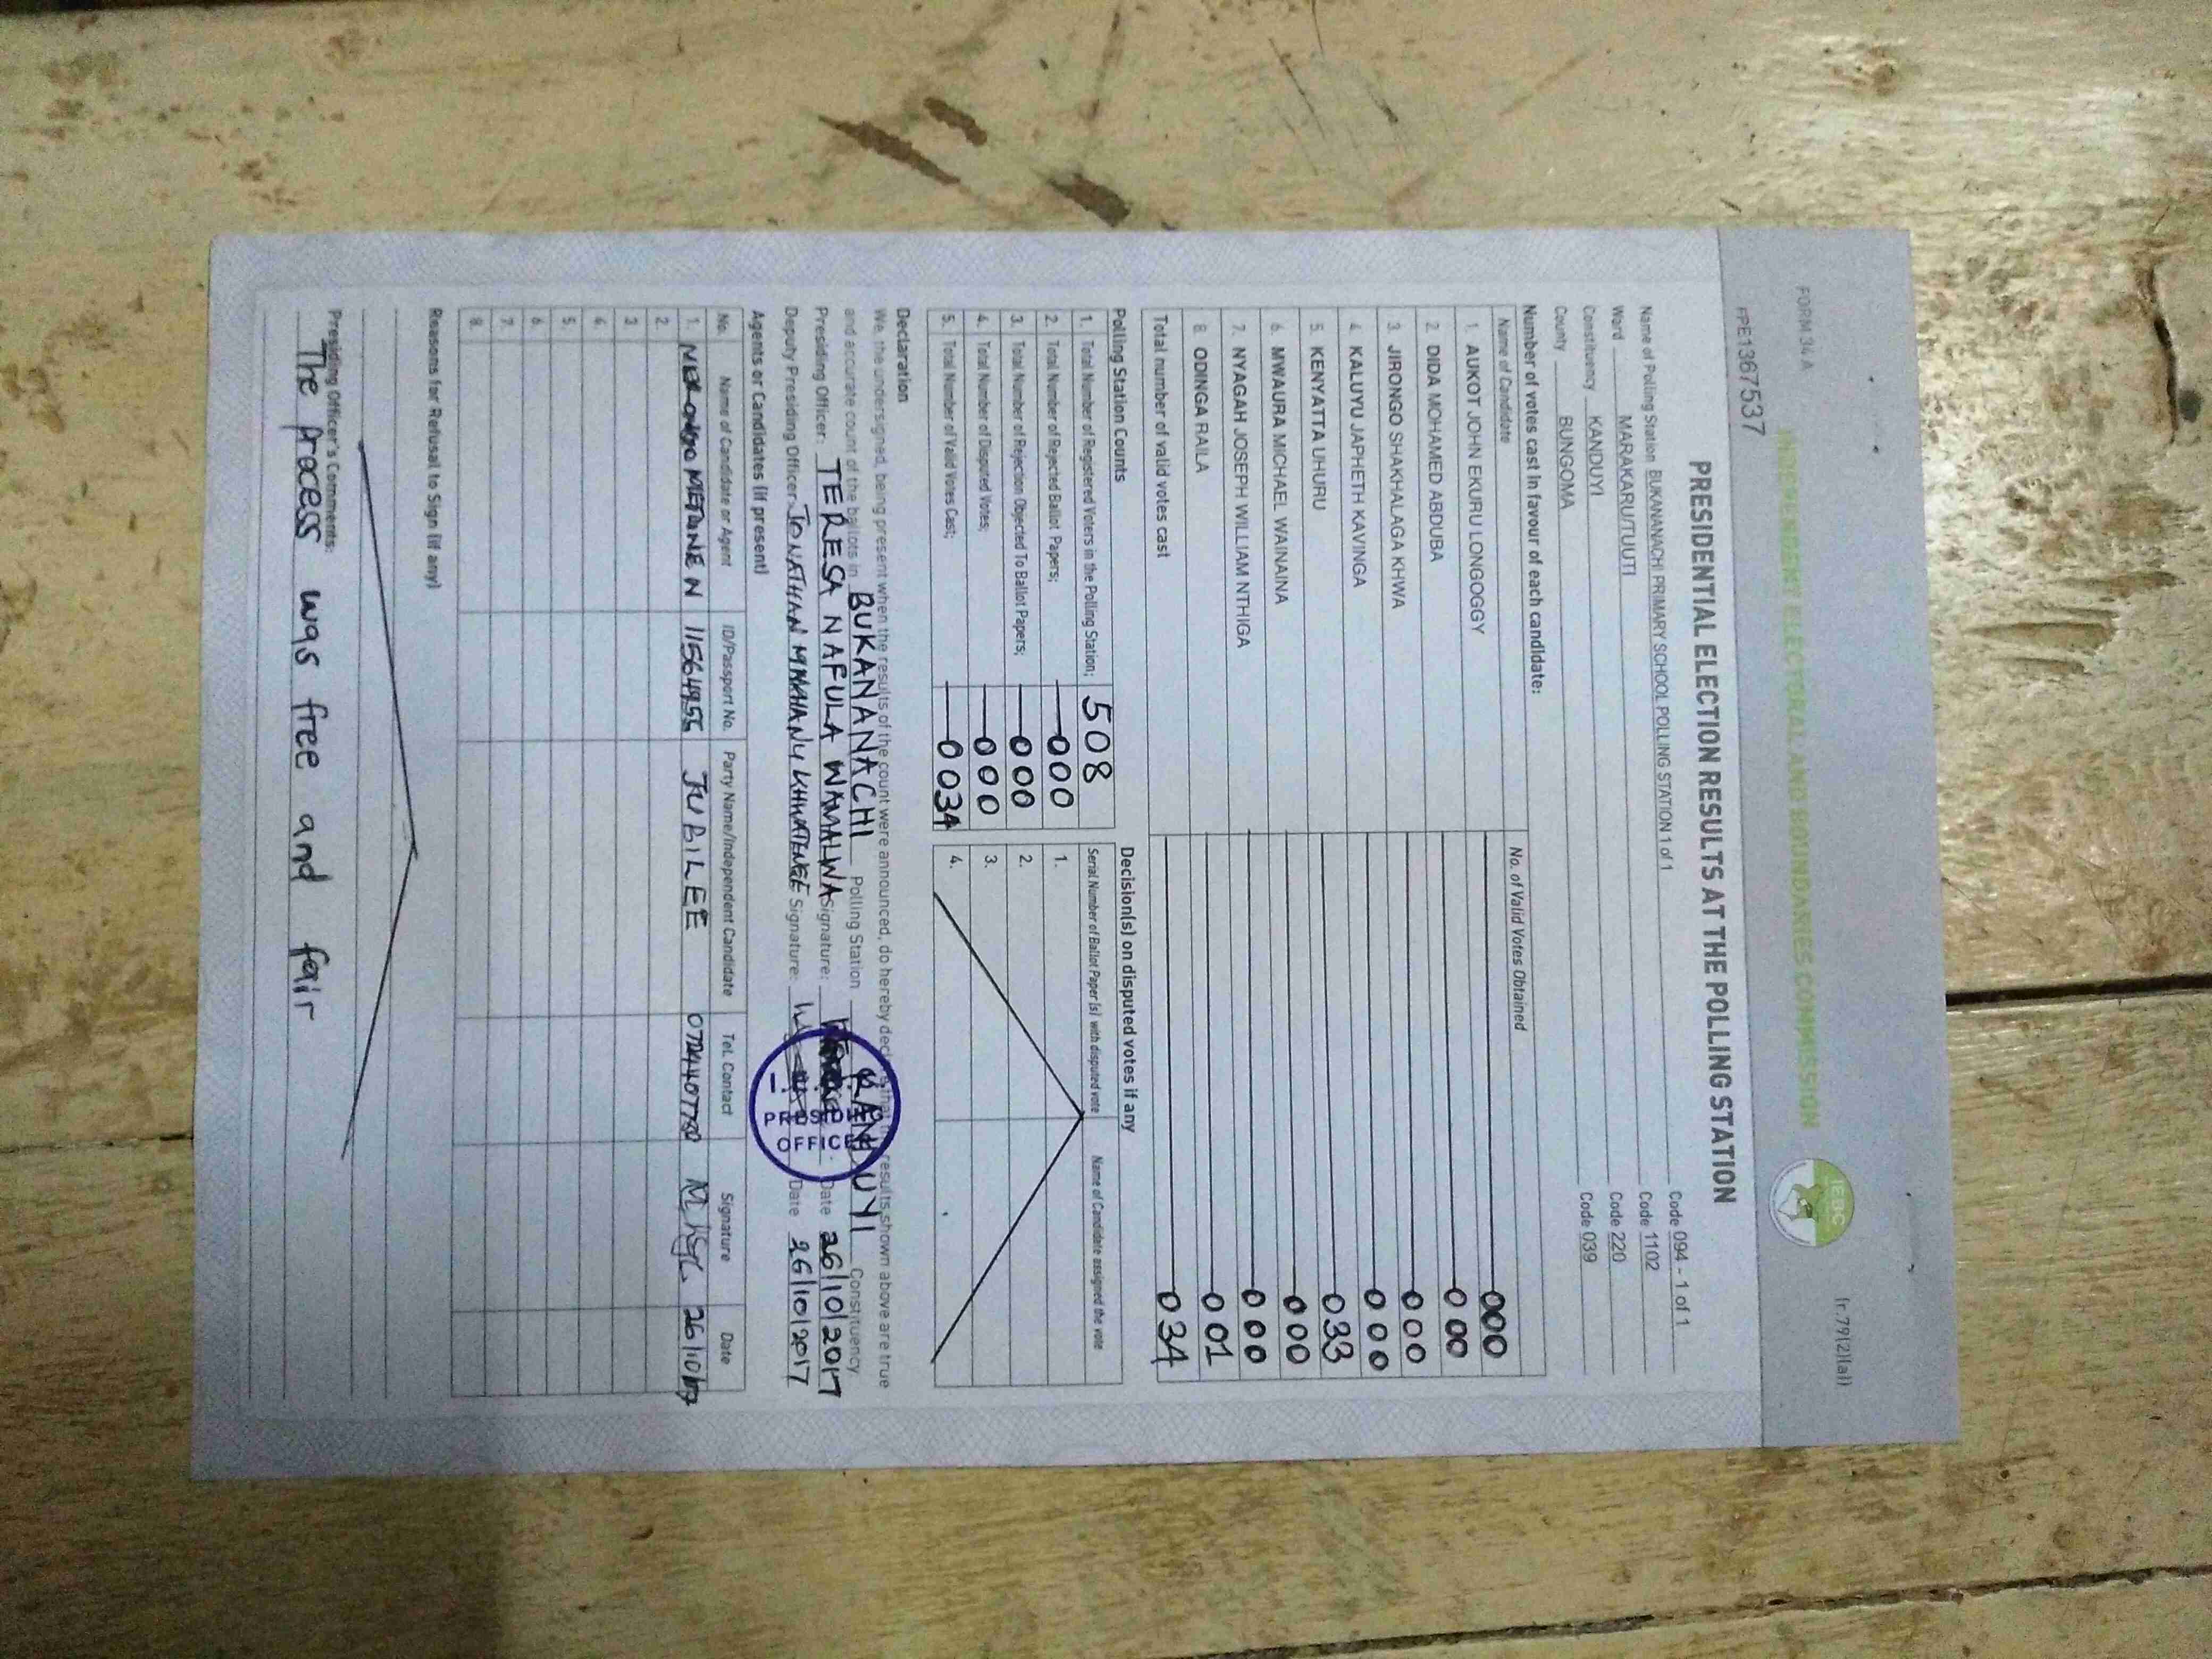 FORM 34A
(r.79(2)(a))
INDEPENDENT ELECTORAL AND BOUNDARIES COMMISSION
IEBC
PE1367537
PRESIDENTIAL ELECTION RESULTS AT THE POLLING STATION
Name of Polling Station BUKANANACHI PRIMARY SCHOOL POLLING STATION 1 of 1 Code 094 - 1 of 1
Ward MARAKARU/TUUTI Code 1102
Constituency KANDUYI Code 220
County BUNGOMA Code 039
Number of votes cast in favour of each candidate:
Name of Candidate No. of Valid Votes Obtained
1. AUKOT JOHN EKURU LONGOGGY 000
2. DIDA MOHAMED ABDUBA 000
3. JIRONGO SHAKHALAGA KHWA 000
4. KALUYU JAPHETH KAVINGA 000
5. KENYATTA UHURU 033
6. MWAURA MICHAEL WAINAINA 000
7. NYAGAH JOSEPH WILLIAM NTHIGA 000
8. ODINGA RAILA 001
Total number of valid votes cast 034
Polling Station Counts
1. Total Number of Registered Voters in the Polling Station; 508
2. Total Number of Rejected Ballot Papers; 000
3. Total Number of Rejection Objected To Ballot Papers; 000
4. Total Number of Disputed Votes; 000
5. Total Number of Valid Votes Cast; 0034
Decision(s) on disputed votes if any
Serial Number of Ballot Paper (s) with disputed vote Name of Candidate assigned the vote
1.
2.
3.
4.
Declaration
We, the undersigned, being present when the results of the count were announced, do hereby declare that the results shown above are true
and accurate count of the ballots in BUKANANACHI Polling Station KANDUYI Constituency
Presiding Officer: TERESA NAFULA WAMALWA Signature: Date 26/10/2017
Deputy Presiding Officer: JONATHAN Signature: Date 26/10/2017
Agents or Candidates (if present)
No. Name of Candidate or Agent ID/Passport No. Party Name/Independent Candidate Tel. Contact Signature Date
1. N JUBILEE 26/10/17
2.
3.
4.
5.
6.
7.
8.
Reasons for Refusal to Sign (if any)
Presiding Officer's Comments:
The process was free and fair